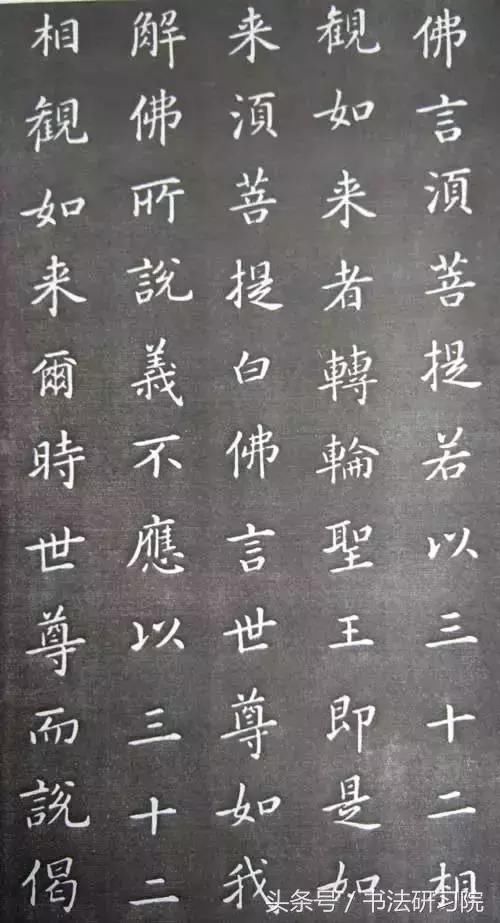 佛言湏菩提若以三十二相
觀如来者轉輪聖王即是如
来湏菩提白佛言世尊如我
解佛所說義不應以三十二
相觀如来爾時世尊而說偈
头条号／书法研习院